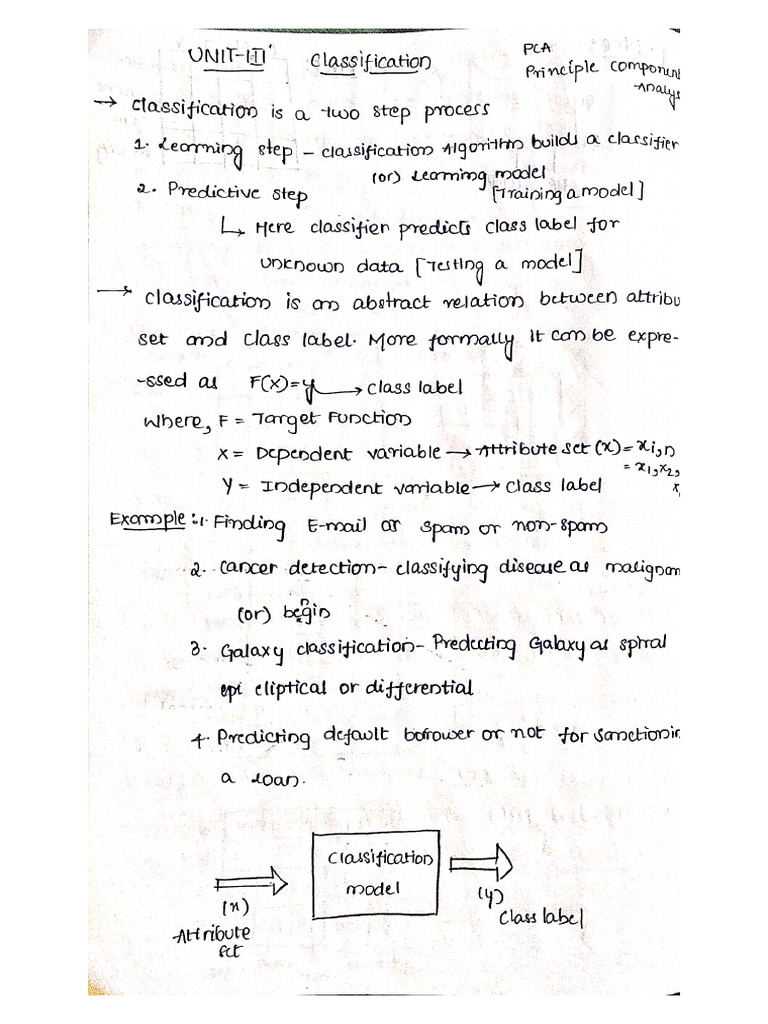 UNIT-III Classification
PCA
Principle Component
-Analys
→ Classification is a two step process
1. Learning step - classification Algorithm builds a classifier
(or) Learning model
[Training a model]
2. Predictive step
↳ Here classifier predicts class label for
unknown data [Testing a model]
→ Classification is an abstract relation between attribu
set and class label. More formally it can be expre-
-ssed as F(x)=y → class label
Where, F = Target Function
X = Dependent variable → Attribute set (x) = xi,n
= x1,x2,
Y = Independent variable → class label x
Example:- 1. Finding E-mail as spam or non-spam
2. Cancer detection - classifying disease as malignan
(or) begin
n
3. Galaxy classification - Predicting Galaxy as spiral
epi eliptical or differential
4. Predicting default borower or not for sanctionin
a loan.
Classification
model
(x)
Attribute
set
(y)
Class label